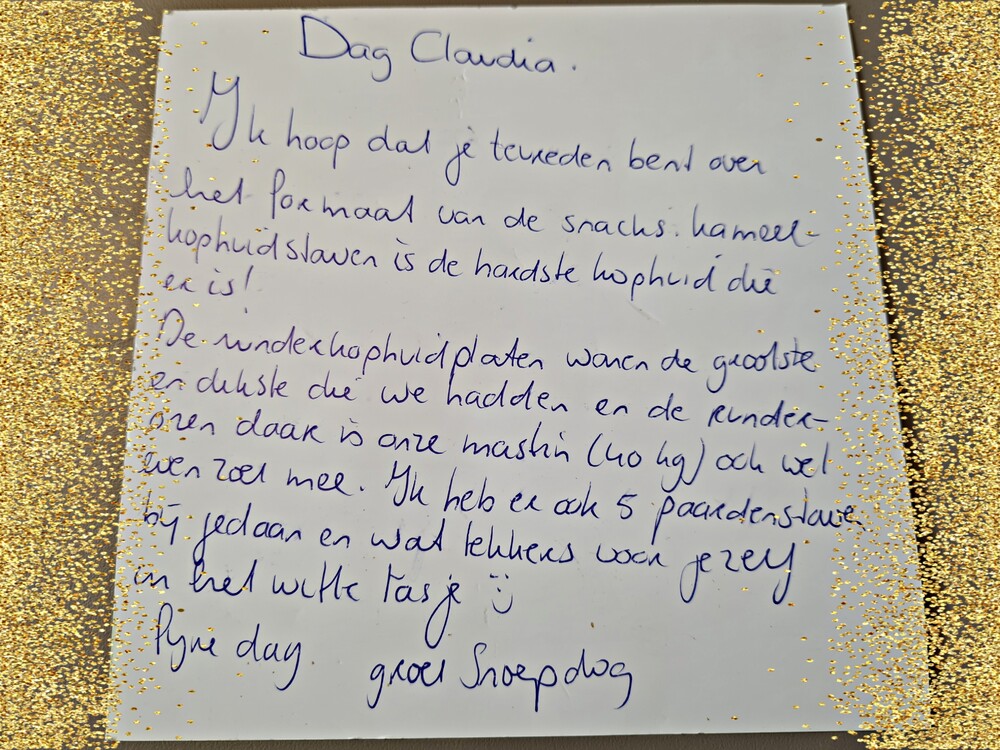 Dag Claudia.
Ik hoop dat je tevreden bent over
het formaat van de snacks. kameel-
kophuidstaven is de hardste kophuid die
er is!
De runderkophuidplaten waren de grootste
en dikste die we hadden en de runder-
oren daar is onze mastin (40 kg) ook wel
even zoet mee. Ik heb er ook 5 paardenstave
bij gedaan en wat lekkers voor jezelf
in het witte tasje :)
Fijne dag. groet Snoepdog